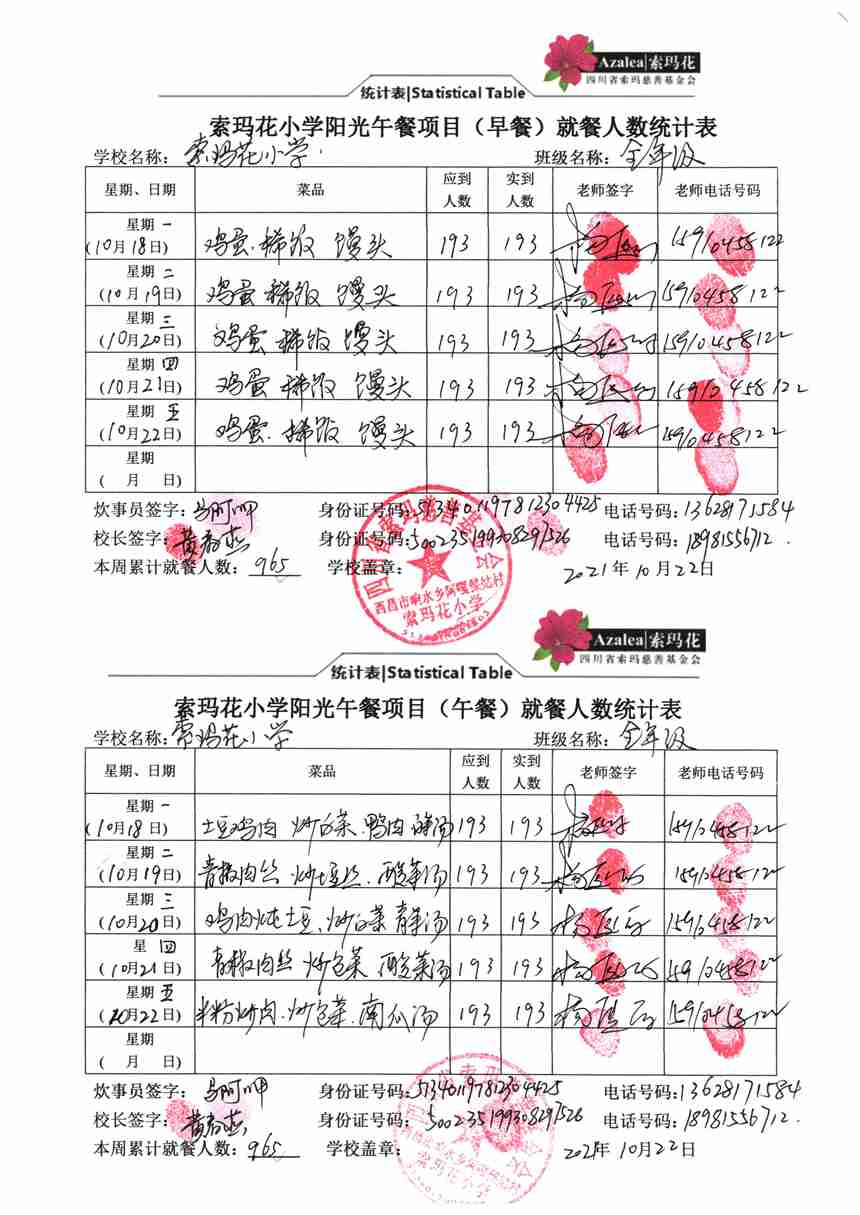 Azalea|索玛花
四川省索玛慈善基金会
统计表|Statistical Table
索玛花小学阳光午餐项目（早餐）就餐人数统计表
学校名称：索玛花小学 班级名称：全年级
星期、日期 菜品 应到人数 实到人数 老师签字 老师电话号码
星期 一 (10月18日) 鸡蛋.稀饭 馒头 193 193 15910458122
星期 二 (10月19日) 鸡蛋 稀饭 馒头 193 193 15910458122
星期 三 (10月20日) 鸡蛋 稀饭 馒头 193 193 15910458122
星期 四 (10月21日) 鸡蛋 稀饭 馒头 193 193 15910458122
星期 五 (10月22日) 鸡蛋.稀饭 馒头 193 193 15910458122
星期 ( 月 日)
炊事员签字：马阿呷 身份证号码：513401197812304425 电话号码：13628171584
校长签字： 身份证号码：500235199308297526 电话号码：18981556712.
本周累计就餐人数：965 学校盖章： 2021年10月22日
西昌市响水乡
索玛花小学
Azalea|索玛花
四川省索玛慈善基金会
统计表|Statistical Table
索玛花小学阳光午餐项目（午餐）就餐人数统计表
学校名称：索玛花小学 班级名称：全年级
星期、日期 菜品 应到人数 实到人数 老师签字 老师电话号码
星期 一 (10月18日) 土豆鸡肉 炒白菜.鸭肉 汤 193 193 15910458122
星期 二 (10月19日) 青椒肉丝.炒土豆丝.酸菜汤 193 193 15910458122
星期 三 (10月20日) 鸡肉炖土豆.炒白菜 汤 193 193 15910458122
星 四 (10月21日) 青椒肉丝 炒包菜 酸菜汤 193 193 15910458122
星期 五 (10月22日) 米粉炒肉.炒包菜.南瓜汤 193 193 15910458122
星期 ( 月 日)
炊事员签字：马阿呷 身份证号码：513401197812304425 电话号码：13628171584
校长签字： 身份证号码：500235199308297526 电话号码：18981556712.
本周累计就餐人数：965 学校盖章： 2021年10月22日
索玛花小学